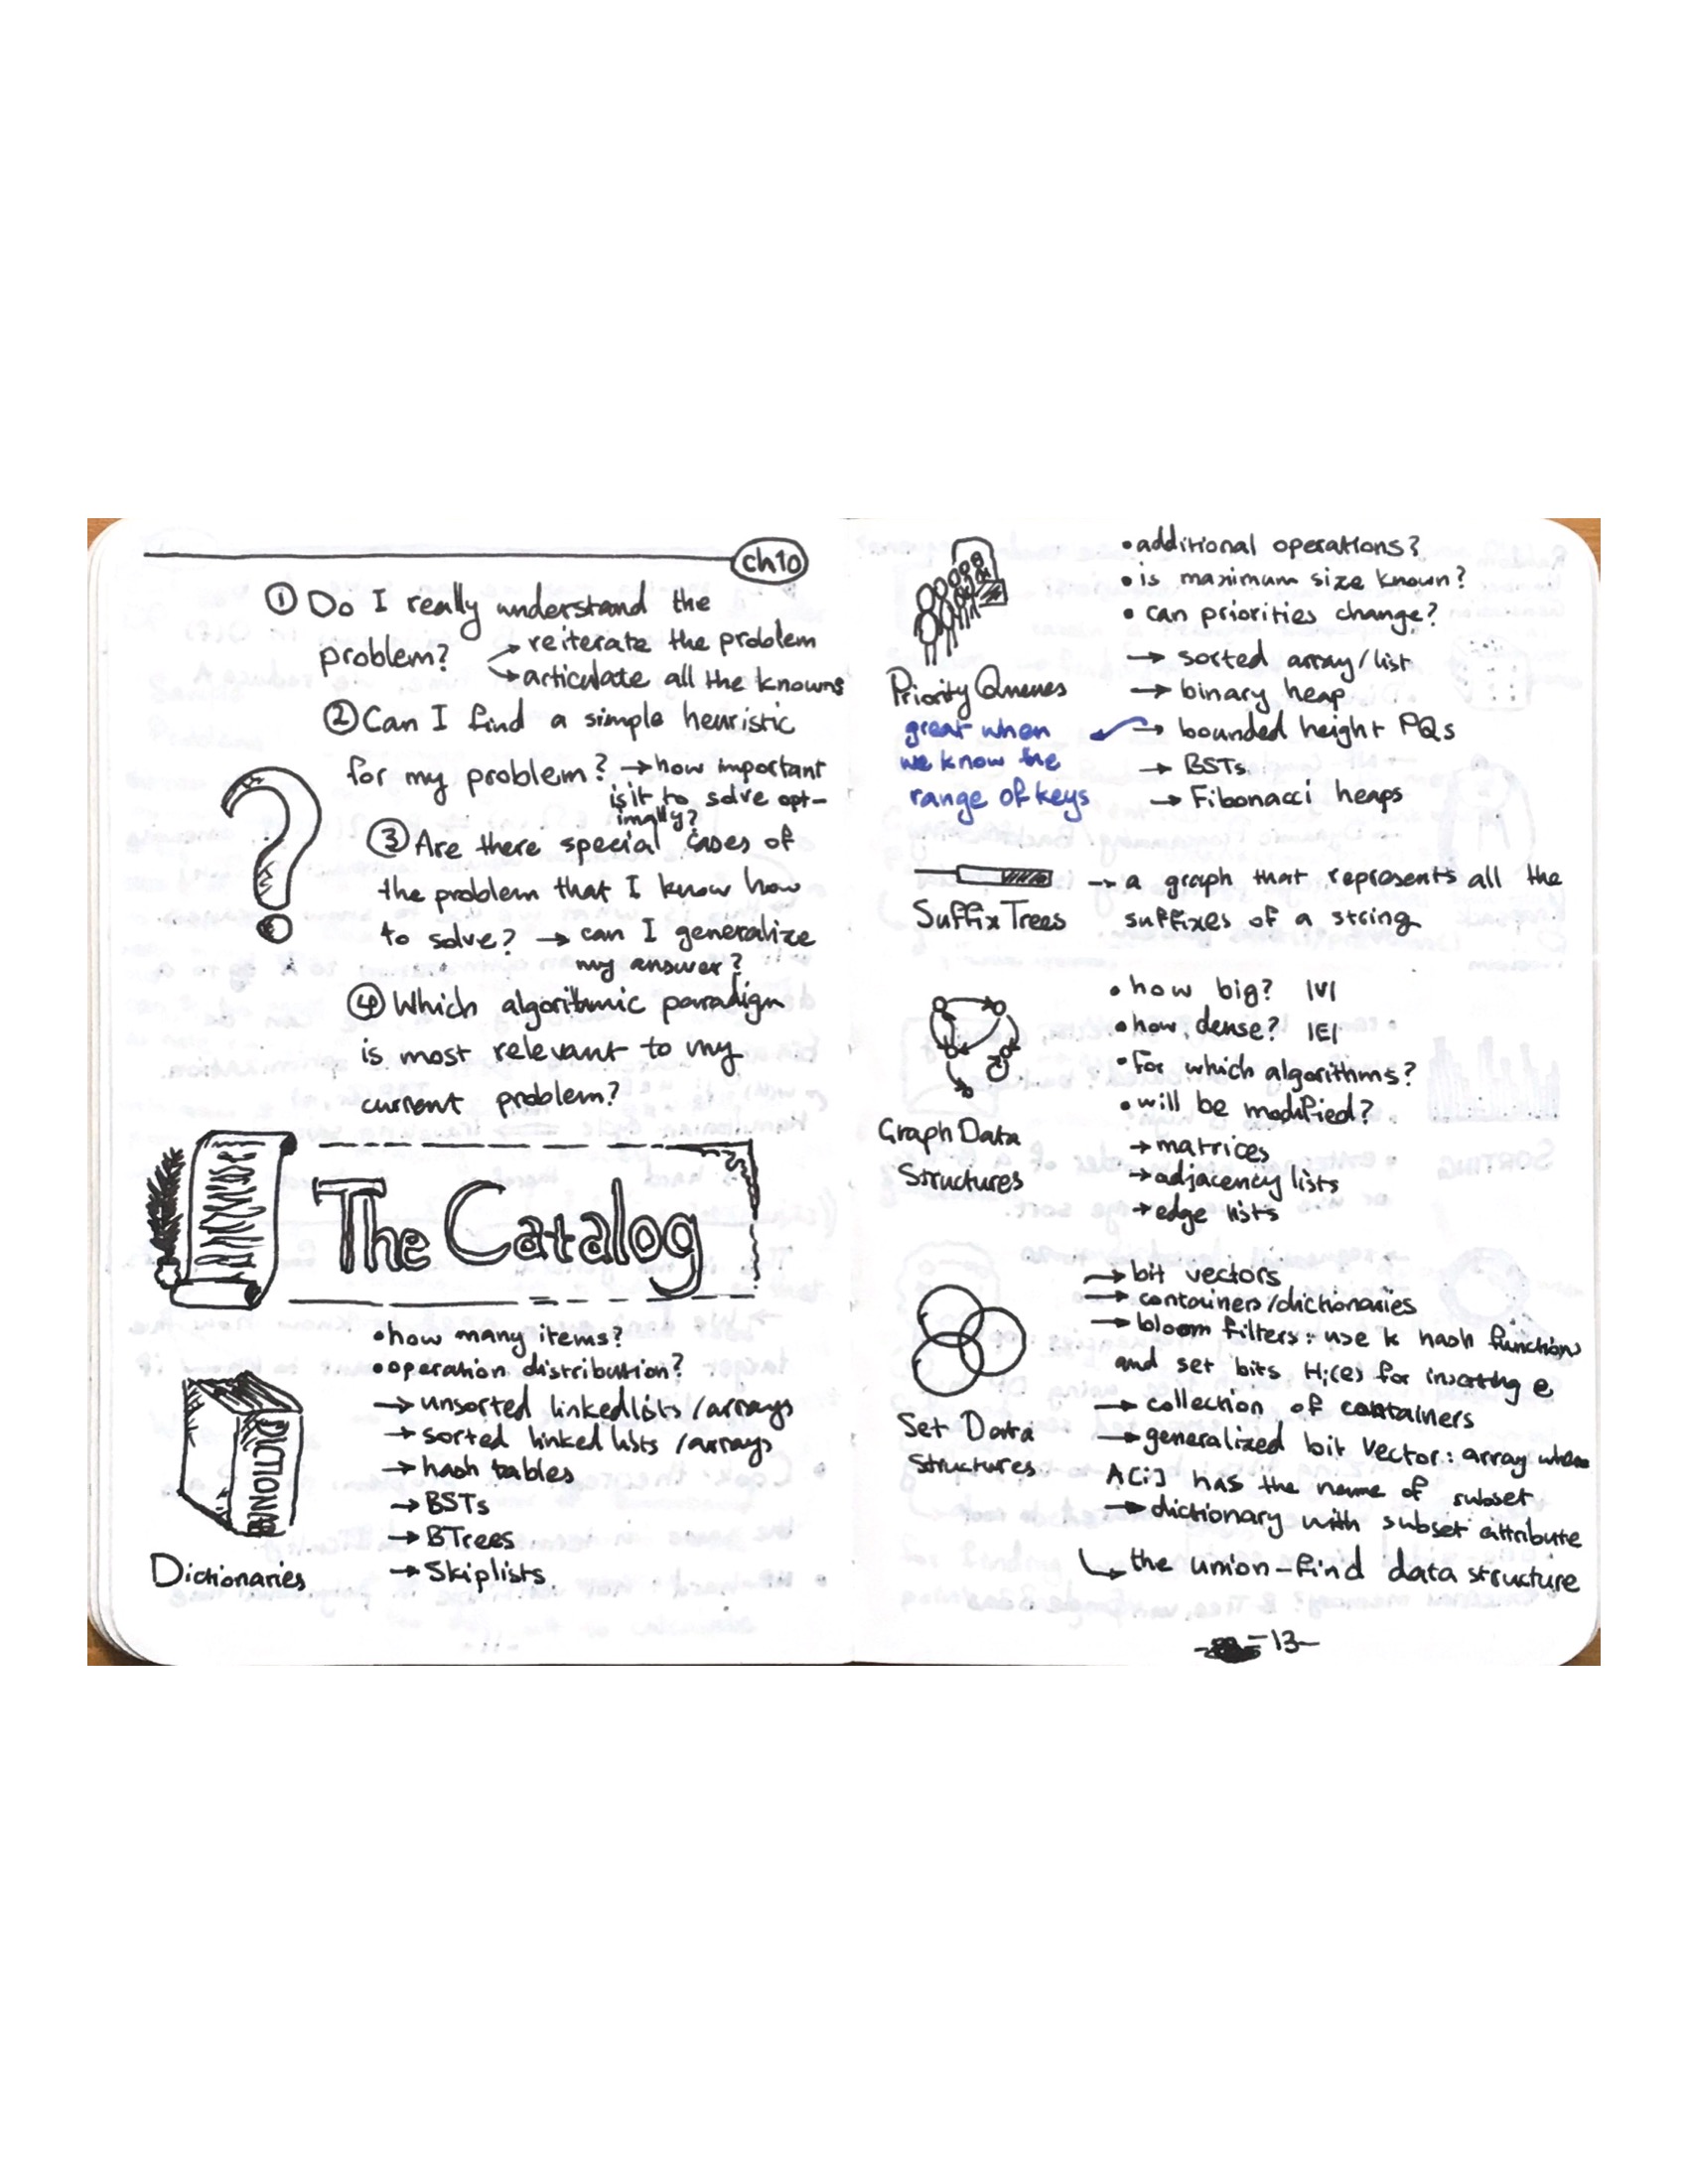 ch10
① Do I really understand the
problem? → reiterate the problem
→ articulate all the knowns
② Can I find a simple heuristic
for my problem? → how important
is it to solve opt-
imally?
③ Are there special cases of
the problem that I know how
to solve? → can I generalize
my answer?
④ Which algorithmic paradigm
is most relevant to my
current problem?
The Catalog
• how many items?
• operation distribution?
→ unsorted linkedlists/arrays
→ sorted linked lists/arrays
→ hash tables
→ BSTs
→ BTrees
→ Skiplists
DICTIONAR
Dictionaries
• additional operations?
• is maximum size known?
• can priorities change?
→ sorted array/list
→ binary heap
→ bounded height PQs
→ BSTs
→ Fibonacci heaps
Priority Queues
great when
we know the
range of keys
→ a graph that represents all the
suffixes of a string
Suffix Trees
• how big? |V|
• how dense? |E|
• for which algorithms?
• will be modified?
→ matrices
→ adjacency lists
→ edge lists
Graph Data
Structures
→ bit vectors
→ containers/dictionaries
→ bloom filters: use k hash functions
and set bits Hi(e) for inserting e
→ collection of containers
→ generalized bit vector: array where
A[i] has the name of subset
→ dictionary with subset attribute
↳ the union-find data structure
Set Data
Structures
-13-